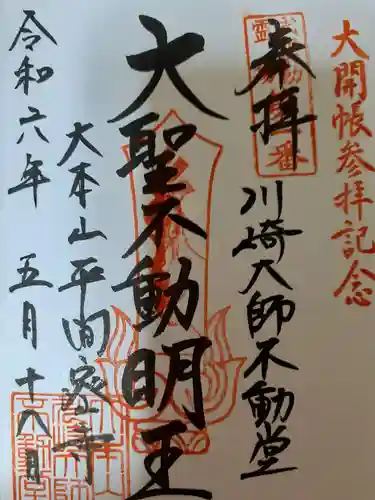 大開帳参拝記念
奉拝
川崎大師不動堂
大聖不動明王
大本山平間寺
令和六年 五月 十八日